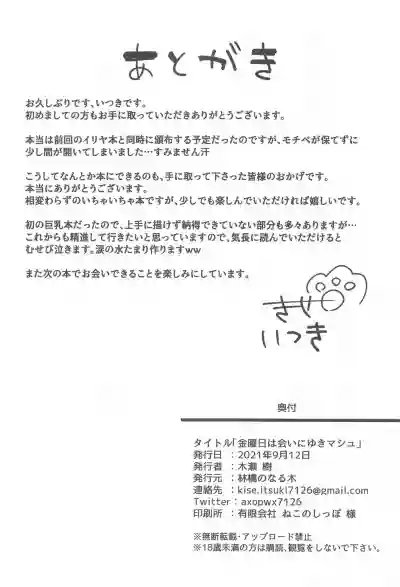 あとがき
お久しぶりです、いつきです。
初めましての方もお手に取っていただきありがとうございます。
本当は前回のイリヤ本と同時に頒布する予定だったのですが、モチベが保てずに
少し間が開いてしまいました…すみません汗
こうしてなんとか本にできるのも、手に取って下さった皆様のおかげです。
本当にありがとうございます。
相変わらずのいちゃいちゃ本ですが、少しでも楽しんでいただければ嬉しいです。
初の巨乳本だったので、上手に描けず納得できていない部分も多々ありますが…
これからも精進して行きたいと思っていますので、気長に読んでいただけると
むせび泣きます。涙の水たまり作りますww
また次の本でお会いできることを楽しみにしています。
きせ
いつき
奥付
タイトル「金曜日は会いにゆきマシュ」
発行日 : 2021年9月12日
発行者 : 木瀬 樹
発行元 : 林檎のなる木
連絡先 : kise.itsuki7126@gmail.com
Twitter : axopwx7126
印刷所 : 有限会社 ねこのしっぽ 様
※無断転載・アップロード禁止
※18歳未満の方は購読、観覧をしないで下さい。